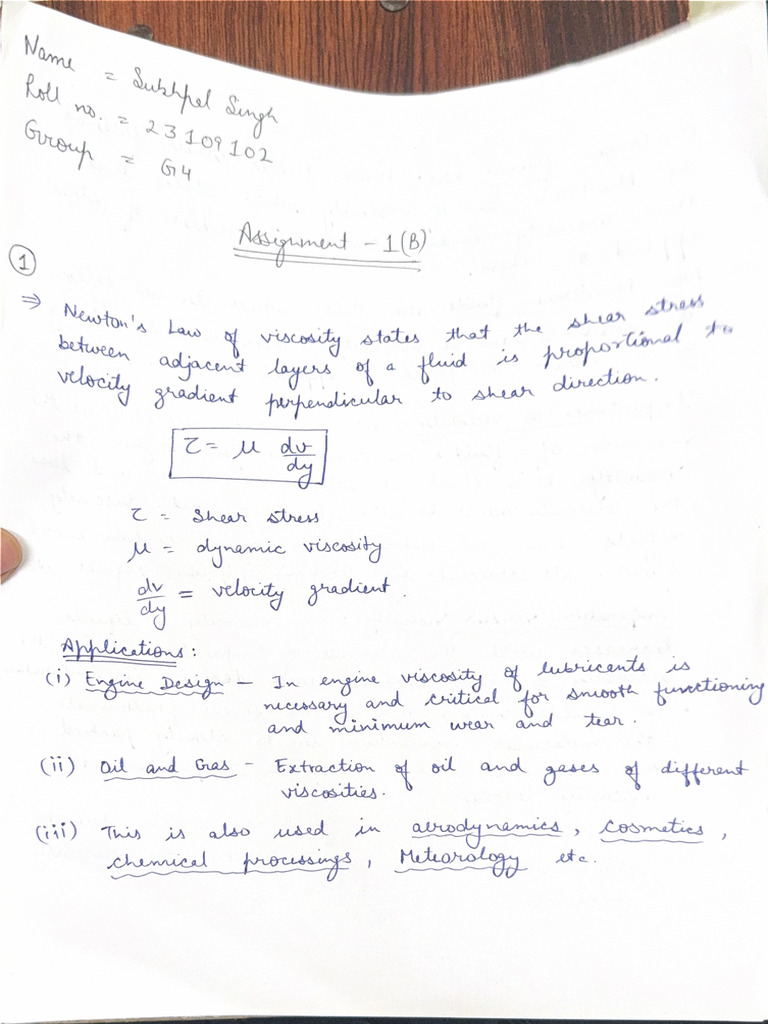 Name = Sukhpal Singh
Roll no. = 23109102
Group = G4
Assignment - 1(B)
①
⇒ Newton's Law of viscosity states that the shear stress
between adjacent layers of a fluid is proportional to
velocity gradient perpendicular to shear direction.
τ = μ dv/dy
τ = Shear stress
μ = dynamic viscosity
dv/dy = velocity gradient.
Applications:
(i) Engine Design - In engine viscosity of lubricants is
necessary and critical for smooth functioning
and minimum wear and tear.
(ii) Oil and Gas - Extraction of oil and gases of different
viscosities.
(iii) This is also used in aerodynamics, Cosmetics,
chemical processings, Meteorology etc.